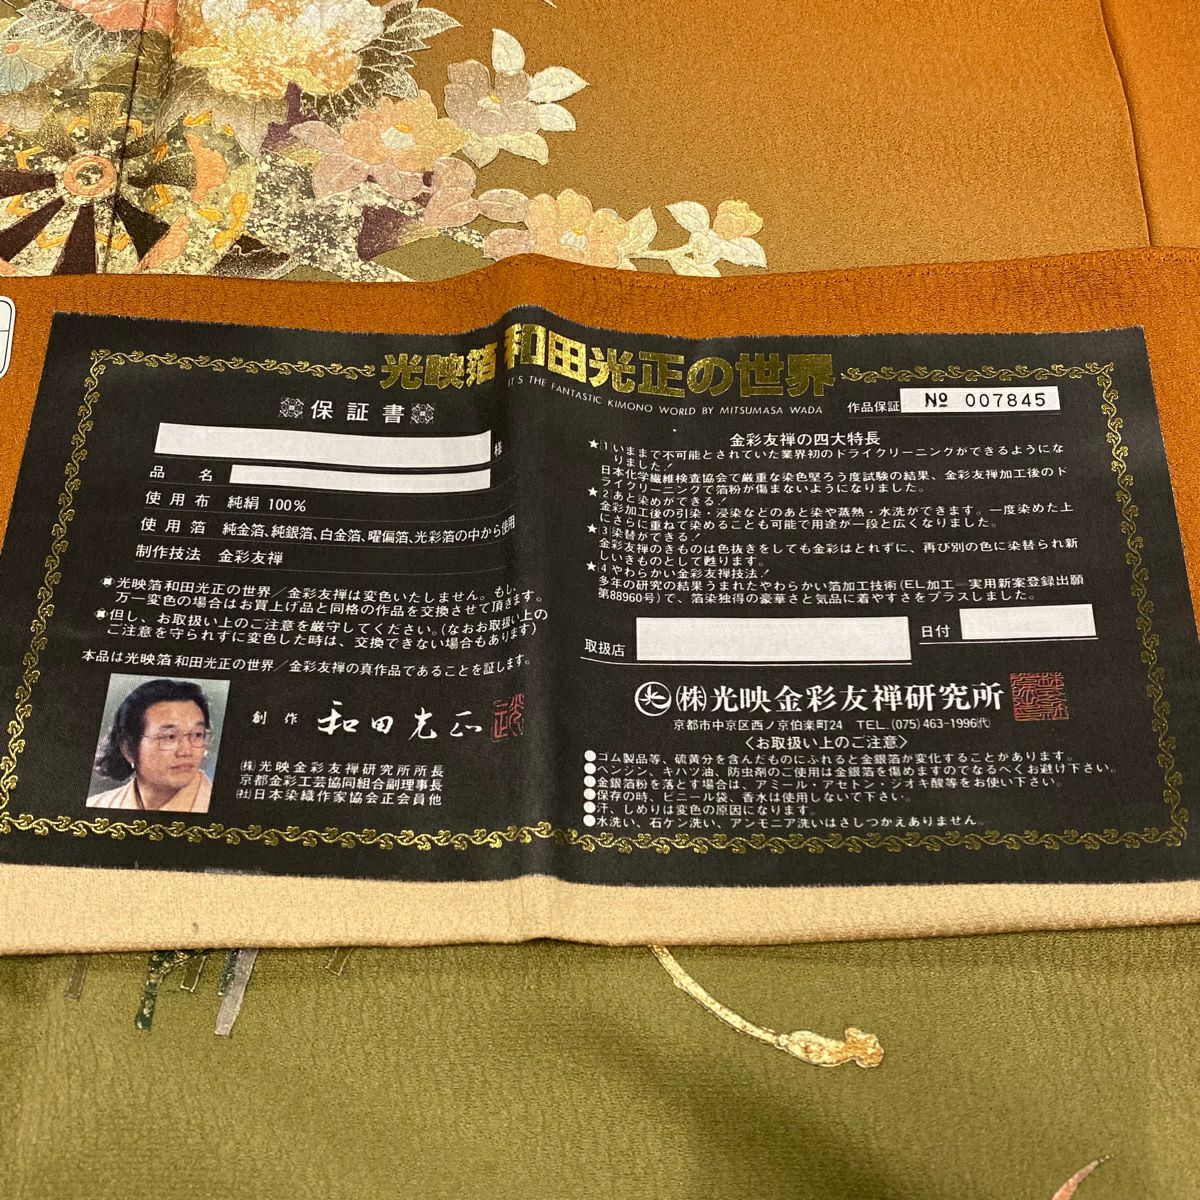 光映箔 和田光正の世界
IT'S THE FANTASTIC KIMONO WORLD BY MITSUMASA WADA
保証書
様
品 名
使用布 純絹 100%
使用箔 純金箔、純銀箔、白金箔、曜偏箔、光彩箔の中から使用
制作技法 金彩友禅
光映箔 和田光正の世界/金彩友禅は変色いたしません。もし、
万一変色の場合はお買上げ品と同格の作品を交換させて頂きます。
但し、お取扱い上のご注意を厳守してください。(なおお取扱い上の
ご注意を守られずに変色した時は、交換できない場合もあります)
本品は光映箔 和田光正の世界/金彩友禅の真作品であることを証します。
創作 和田光正
㈱光映金彩友禅研究所所長
京都金彩工芸協同組合副理事長
㈳日本染織作家協会正会員他
作品保証 № 007845
金彩友禅の四大特長
★1 いままで不可能とされていた業界初のドライクリーニングができるようにな
りました!
日本化学繊維検査協会で厳重な染色堅ろう度試験の結果、金彩友禅加工後のド
ライクリーニングで箔粉が傷まないようになりました。
★2 あと染めができる!
金彩加工後の引染・浸染などのあと染や蒸熱・水洗ができます。一度染めた上
にさらに重ねて染めることも可能で用途が一段と広くなりました。
★3 染替ができる!
金彩友禅のきものは色抜きをしても金彩はとれずに、再び別の色に染替られ新
しいきものとして甦ります。
★4 やわらかい金彩友禅技法!
多年の研究の結果うまれたやわらかい箔加工技術(EL加工—実用新案登録出願
第88960号)で、箔染独得の豪華さと気品に着やすさをプラスしました。
取扱店
日付
㈱光映金彩友禅研究所
京都市中京区西ノ京伯楽町24 TEL.(075)463-1996㈹
〈お取扱い上のご注意〉
●ゴム製品等、硫黄分を含んだものにふれると金銀箔が変化することがあります。
●ベンジン、キハツ油、防虫剤のご使用は金銀箔を傷めますのでなるべくお避け下さい。
●金銀箔粉を落とす場合は、アミール・アセトン・ジオキ酸等をお使い下さい。
●保存の時、ビニール袋、香水は使用しないで下さい。
●汗、しめりは変色の原因になります。
●水洗い、石ケン洗い、アンモニア洗いはさしつかえありません。